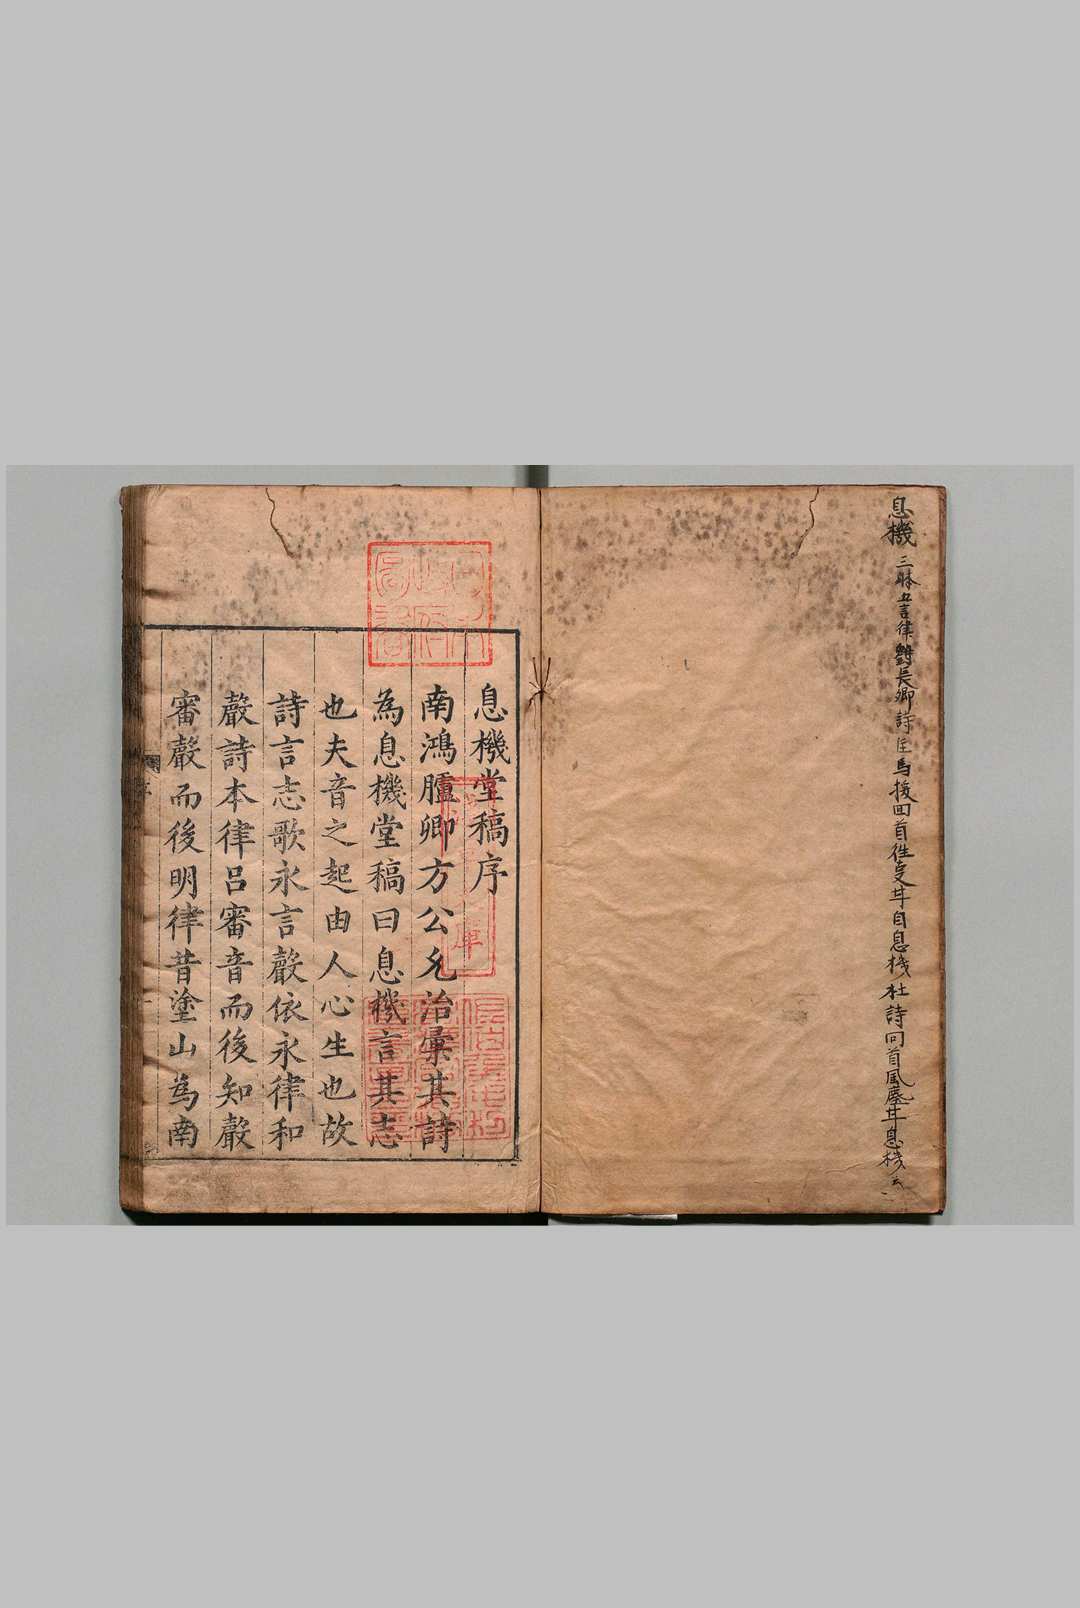 息機 三體五言律劉長卿詩住馬復回首往更無自息機杜詩回首風塵甘息機
息機堂稿序
南鴻臚卿方公允治彙其詩
為息機堂稿曰息機言其志
也夫音之起由人心生也故
詩言志歌永言聲依永律和
聲詩本律呂審音而後知聲
審聲而後明律昔塗山為南